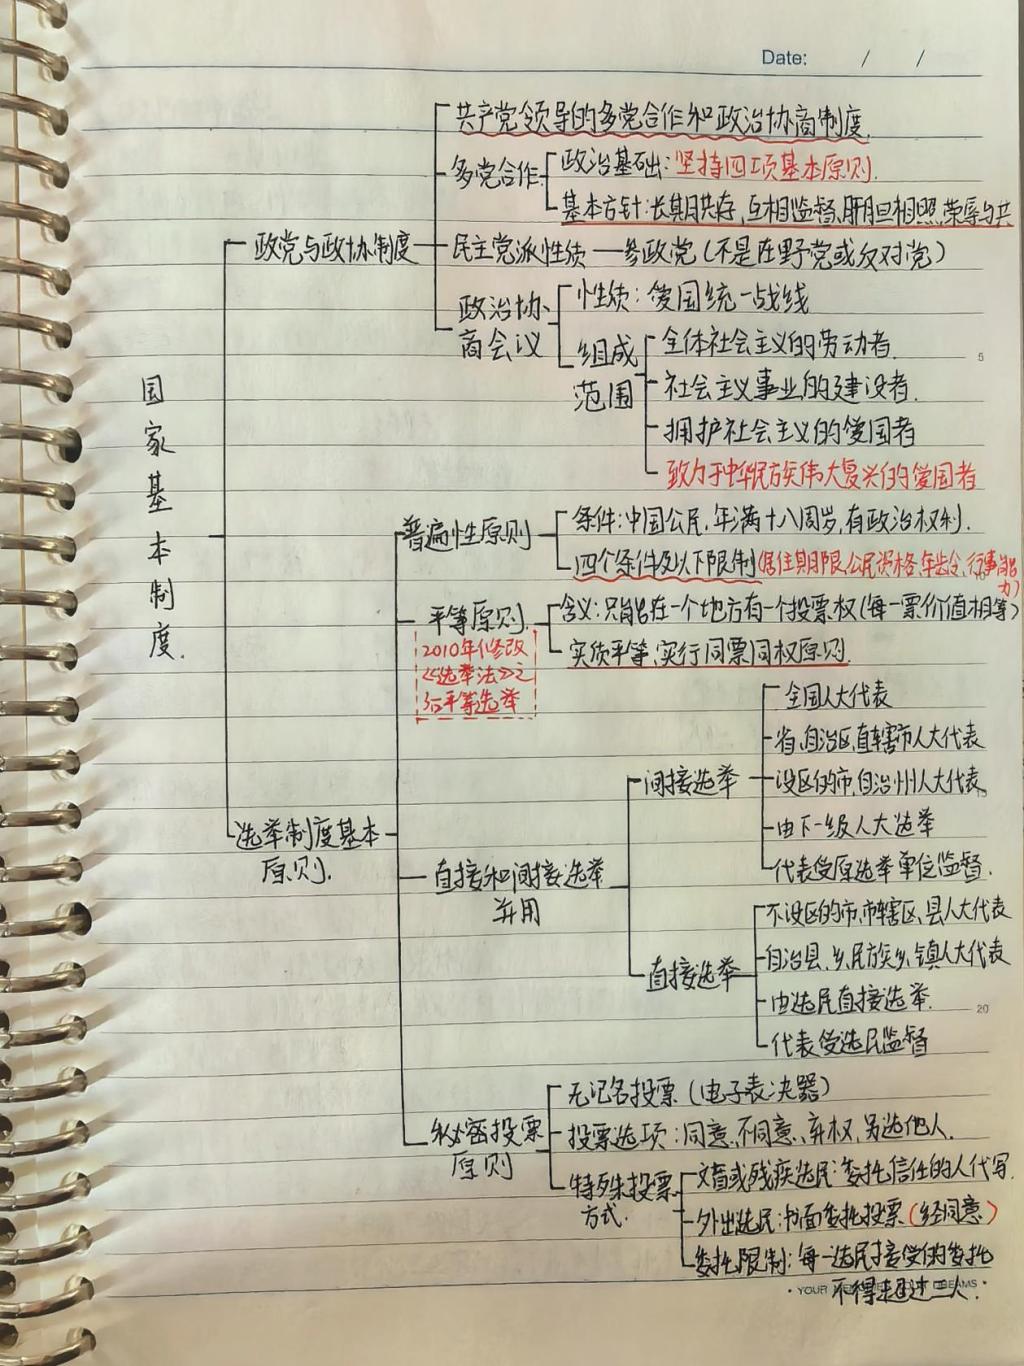 Date: / /
共产党领导的多党合作和政治协商制度.
多党合作
政治基础:坚持四项基本原则.
基本方针:长期共存,互相监督,肝胆相照,荣辱与共
政党与政协制度
民主党派性质——参政党(不是在野党或反对党)
政治协
商会议
性质:爱国统一战线
组成
范围
全体社会主义的劳动者.
5
社会主义事业的建设者.
拥护社会主义的爱国者
致力于中华民族伟大复兴的爱国者
国家基本制度.
普遍性原则
条件:中国公民,年满十八周岁,有政治权利.
四个条件及以下限制(居住期限,公民资格,年龄,行事能
力)
平等原则.
含义:只能在一个地方有一个投票权(每一票价值相等)
实质平等,实行同票同权原则.
2010年修改
《选举法》之
后平等选举
选举制度基本
原则.
直接和间接选举
并用
间接选举
全国人大代表
省,自治区,直辖市人大代表
设区的市,自治州人大代表
由下一级人大选举
代表受原选举单位监督.
直接选举
不设区的市,市辖区、县人大代表
自治县、乡、民族乡、镇人大代表
由选民直接选举.
20
代表受选民监督
秘密投票
原则
无记名投票(电子表决器)
投票选项:同意、不同意、弃权,另选他人.
特殊投票
方式.
文盲或残疾选民:委托信任的人代写.
外出选民:书面委托投票(经同意)
委托限制:每一选民接受的委托
不得超过三人.
• YOUR DREAMS •